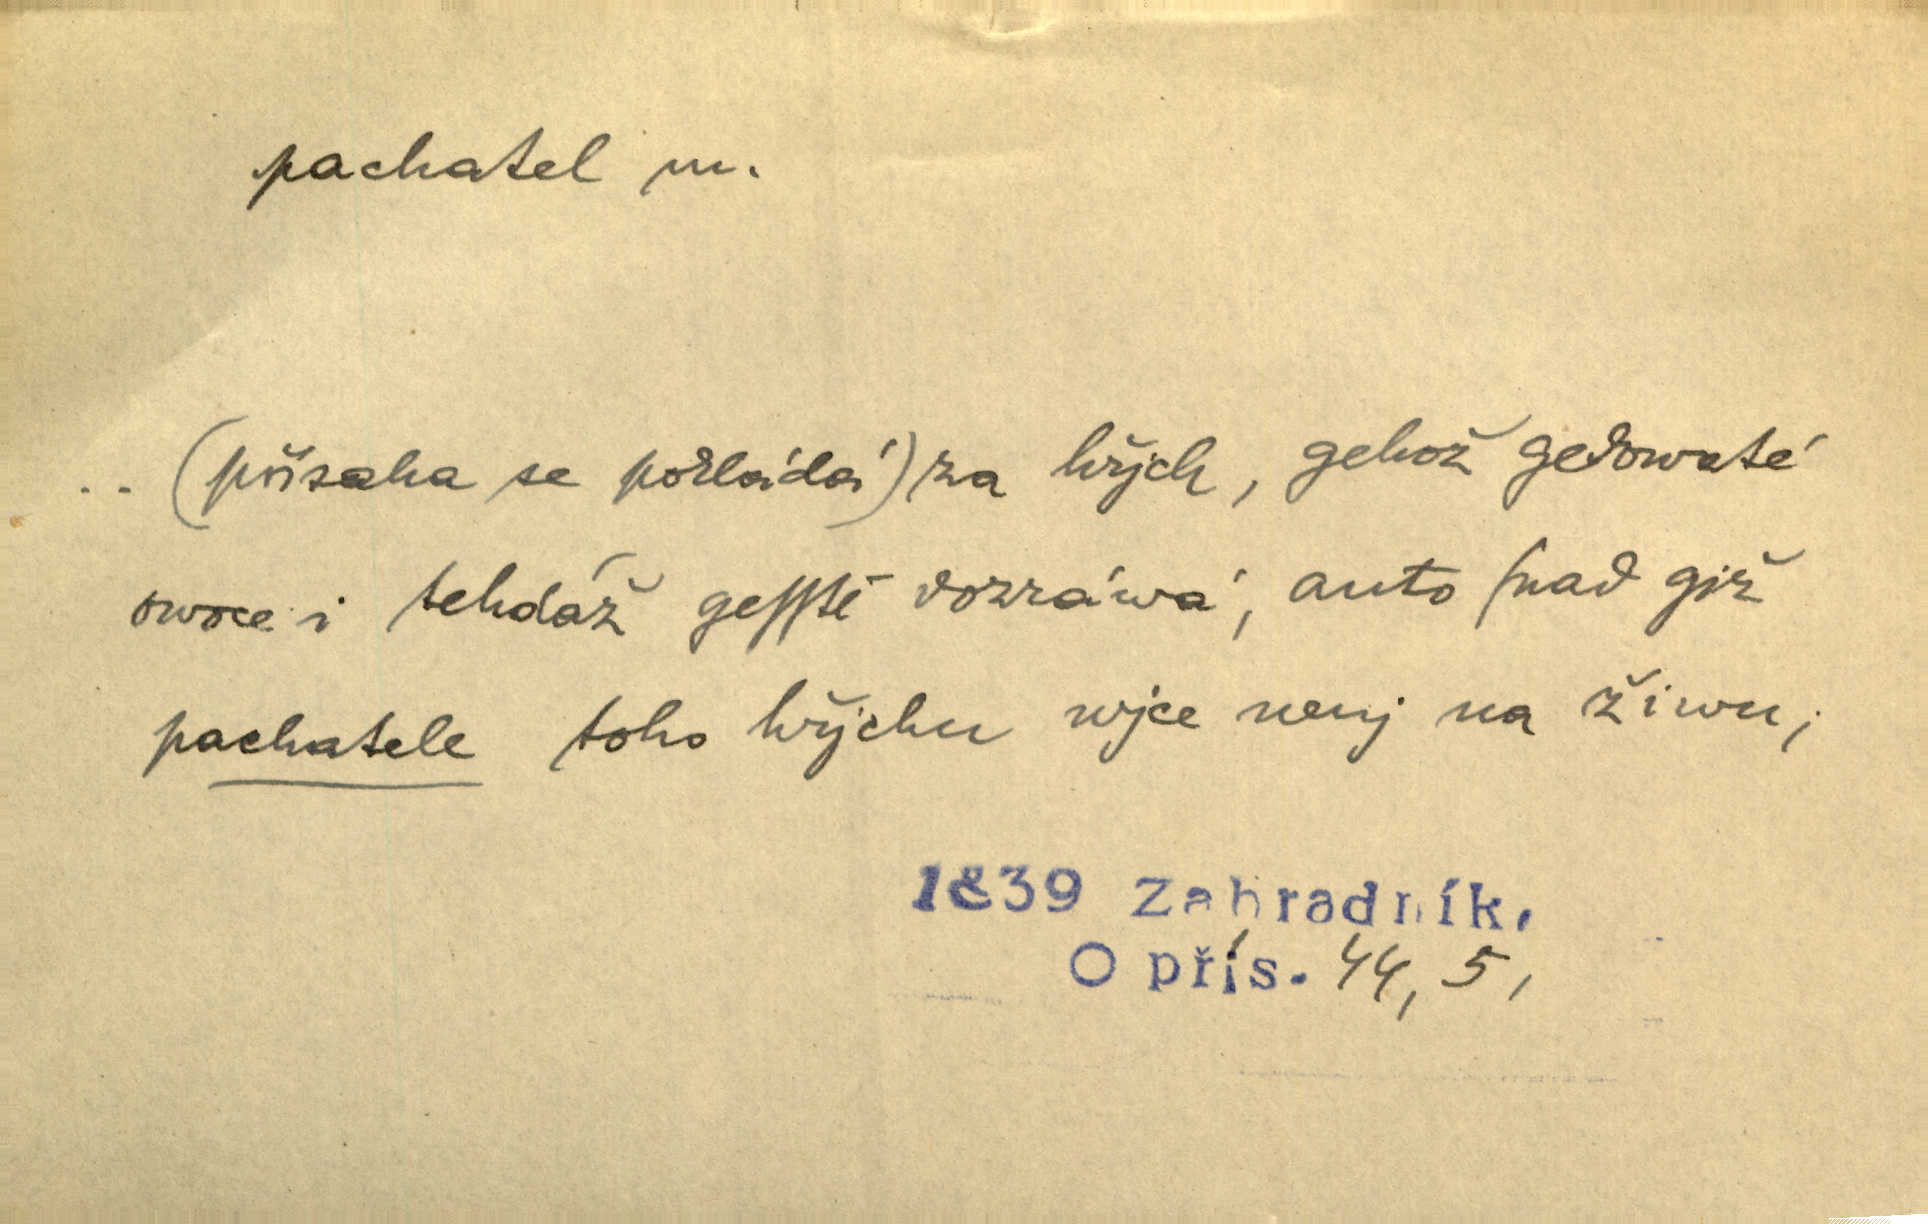 pachatel m.
.. (přísaha se pokládá) za hřjch, gehož gedowaté
owoce i tehdáž gesstě dozráwá, anto snad giž
pachatele toho hřjchu wjce nenj na žiwu;
1839 Zahradník.
O přís. 44, 5,